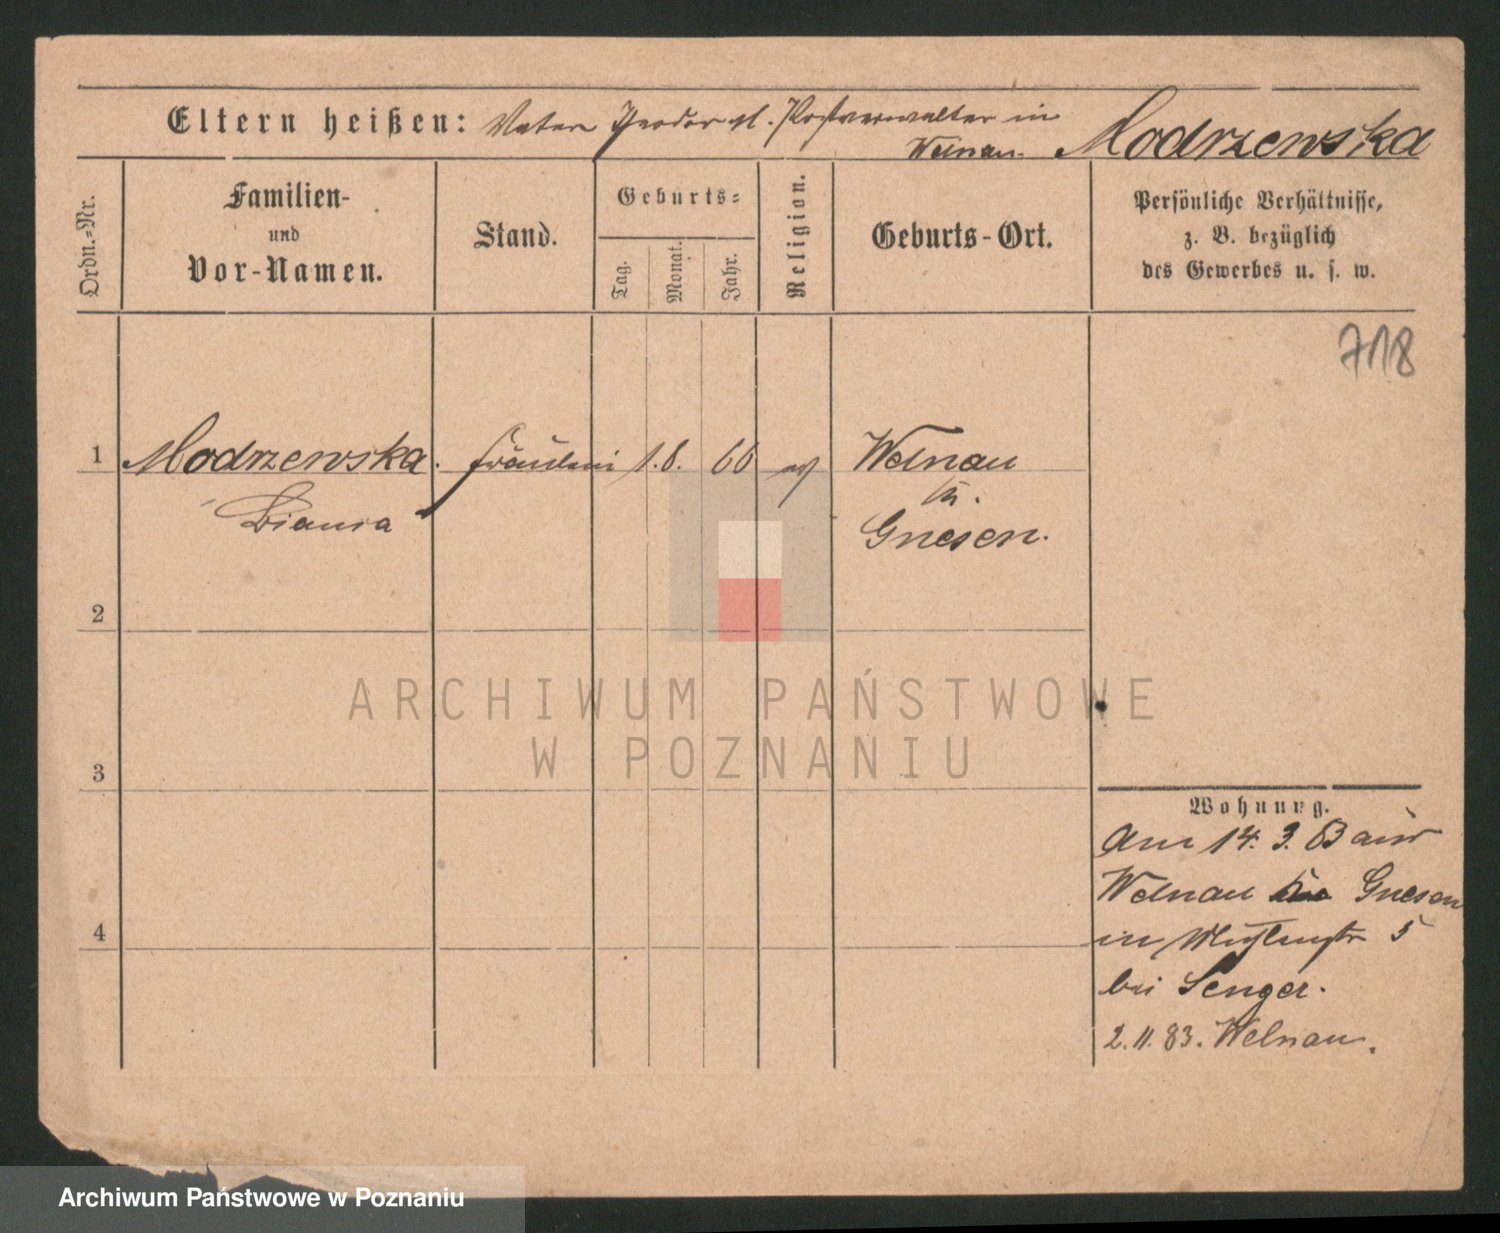 Eltern heißen: Vater Theodor M. Postverwalter in
Welnau. Modrzewska
Ordn.=Nr.
Familien-
und
Vor-Namen.
Stand.
Geburts=
Tag.
Monat.
Jahr.
Religion.
Geburts-Ort.
Persönliche Verhältnisse,
z. B. bezüglich
des Gewerbes u. s. w.
718
1 Modrzewska. Fräulein 1. 8. 66 ev Welnau
b.
Bianca
Gnesen.
2
ARCHIWUM PAŃSTWOWE
W POZNANIU
3
Wohnung.
Am 14. 3. 83 aus
Welnau Gnesen
4
in 5
bei Senger.
2. 11. 83. Welnau.
Archiwum Państwowe w Poznaniu